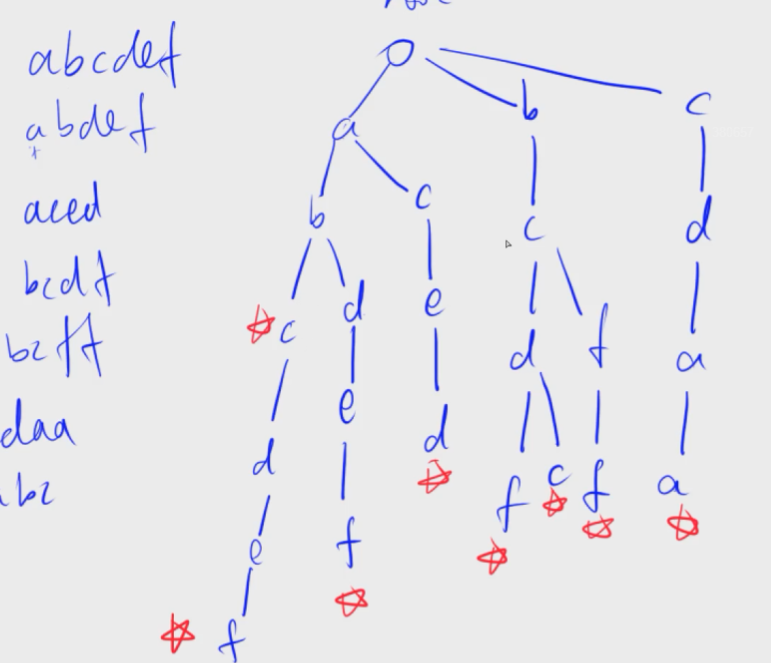 abcdef
abdef
aced
bcdf
bcff
daa
bc
a
b
c
b
c
c
d
c
d
e
c
d
f
a
e
d
d
f
c
f
a
e
f
f